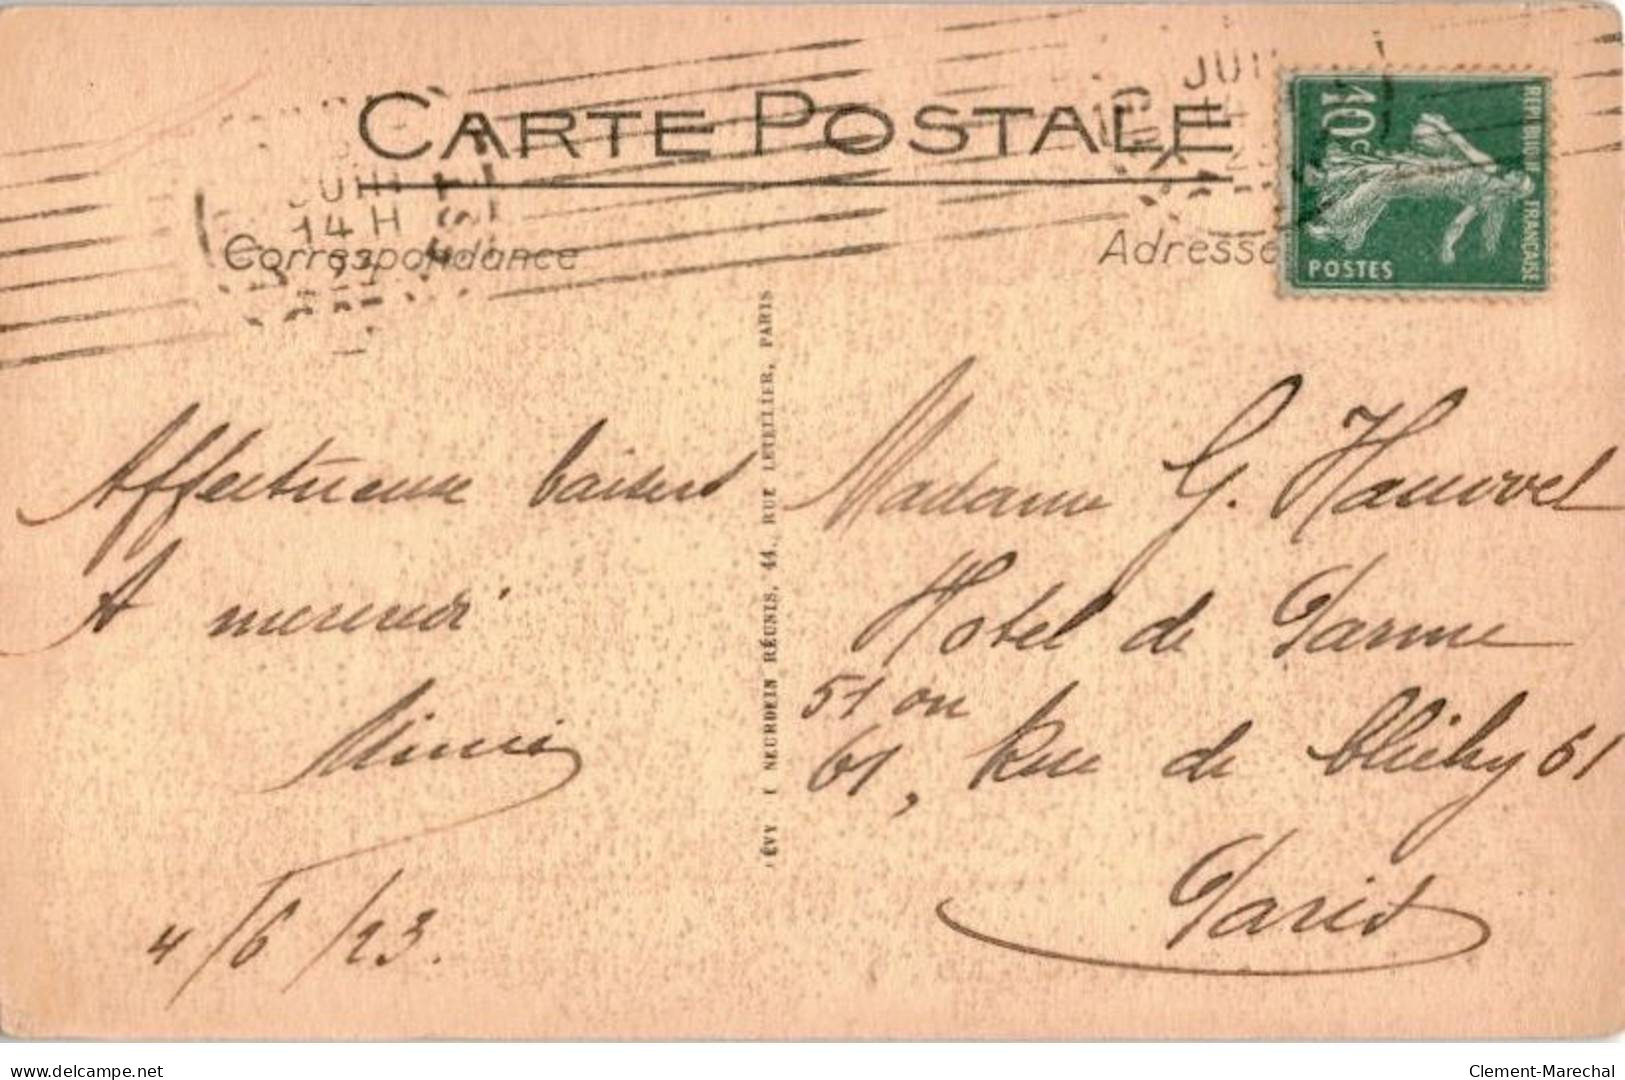 CARTE POSTALE
JUIN
14 H
Correspondance
Adresse
10c
REPUBLIQUE FRANÇAISE
POSTES
LÉVY & NEURDEIN RÉUNIS, 44, RUE LETELLIER, PARIS
Affectueux baisers
A
Mimi
4/6/23.
Madame G.
Hotel de Parme
51 ou
61, Rue de Clichy 61
Paris
delcampe.net
Clement-Marechal